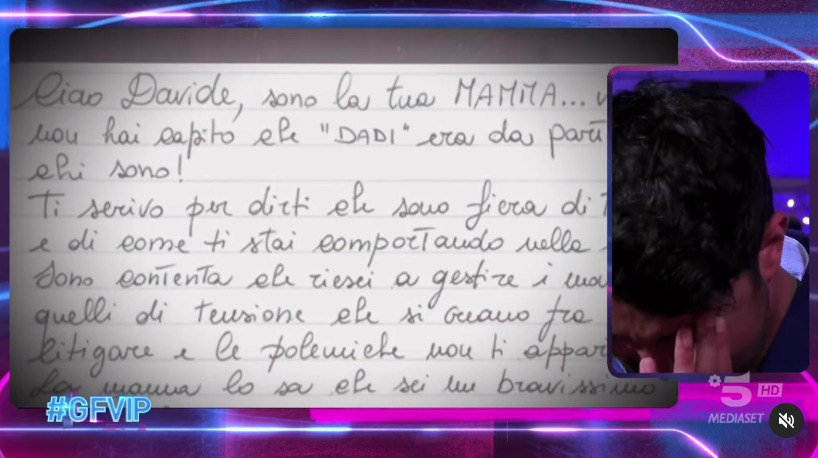 Ciao Davide, sono la tua MAMMA...
non hai capito che "DADI" era da
chi sono!
Ti scrivo per dirti che sono fiera di
e di come ti stai comportando nella
Sono contenta che riesci a gestire i
quelli di tensione che si creano fra
litigare e le polemiche non ti
La mamma lo sa che sei un bravissimo
#GFVIP
5 HD
MEDIASET